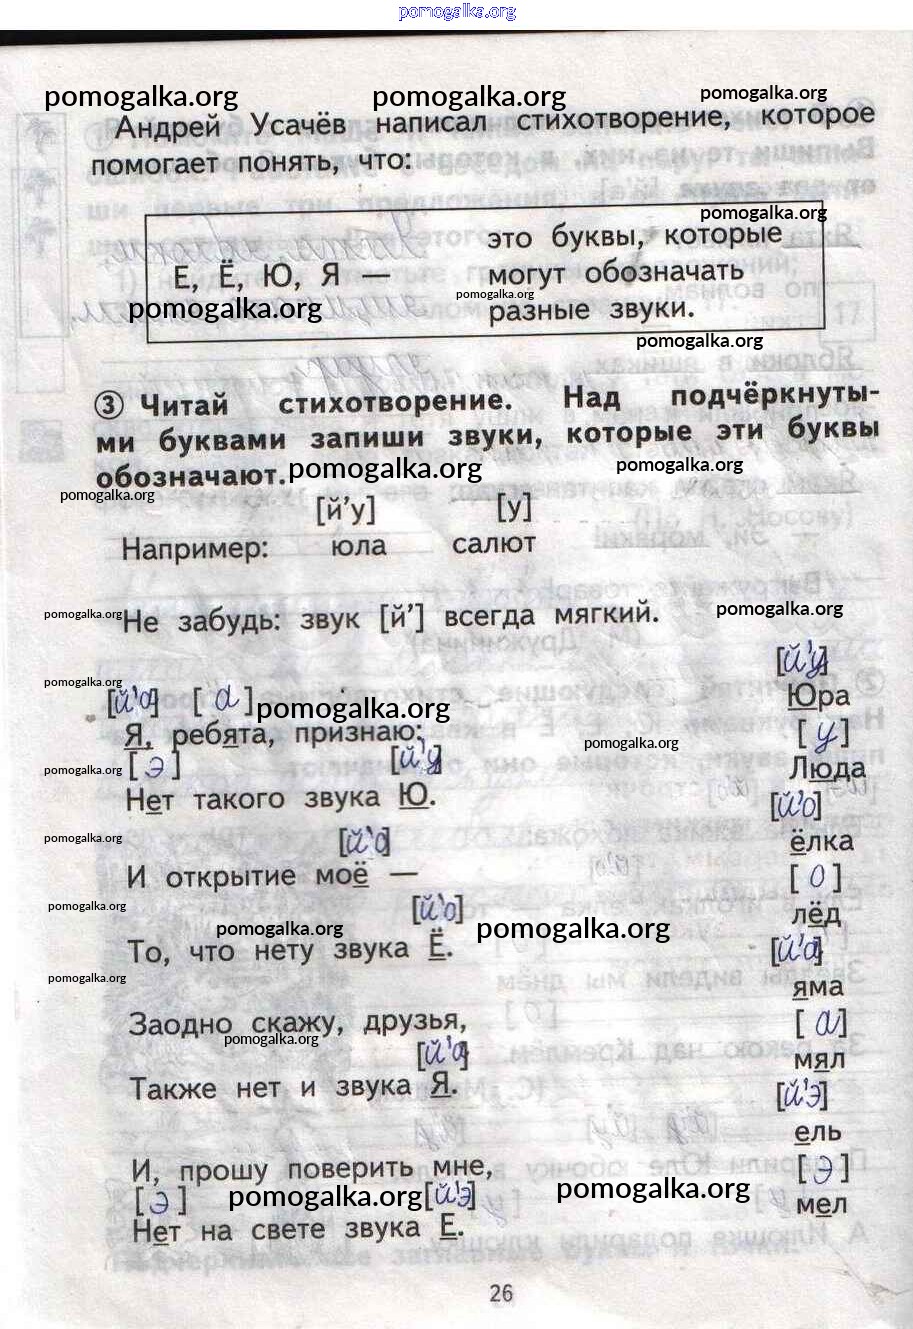 pomogalka.org
pomogalka.org pomogalka.org pomogalka.org
Андрей Усачёв написал стихотворение, которое
помогает понять, что:
pomogalka.org
Е, Ё, Ю, Я — это буквы, которые
могут обозначать
pomogalka.org pomogalka.org
разные звуки.
pomogalka.org
3 Читай стихотворение. Над подчёркнуты-
ми буквами запиши звуки, которые эти буквы
обозначают. pomogalka.org pomogalka.org
pomogalka.org
[й’у] [у]
Например: юла салют
pomogalka.org Не забудь: звук [й’] всегда мягкий. pomogalka.org
[й’у]
pomogalka.org
[й’а] [а] pomogalka.org Юра
Я, ребята, признаю: [у]
pomogalka.org
pomogalka.org [э] [й’у] Люда
Нет такого звука Ю. [й’о]
pomogalka.org [й’о] ёлка
И открытие моё — [о]
pomogalka.org [й’о] лёд
pomogalka.org pomogalka.org
То, что нету звука Ё. [й’а]
pomogalka.org яма
Заодно скажу, друзья, [а]
pomogalka.org
[й’а] мял
Также нет и звука Я. [й’э]
ель
И, прошу поверить мне, [э]
[э] pomogalka.org [й’э] pomogalka.org мел
Нет на свете звука Е.
26